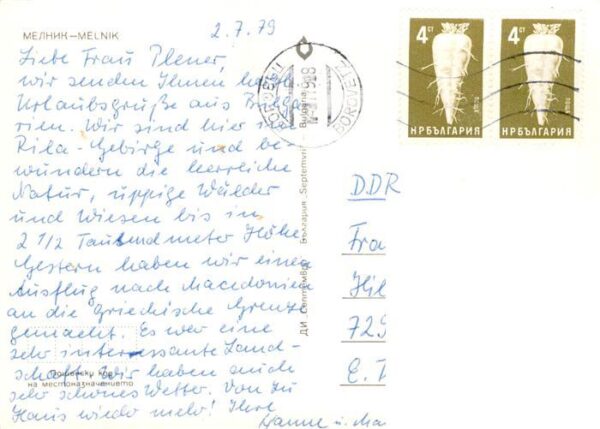 МЕЛНИК—MELNIK
2.7.79
Liebe Frau Plener,
wir senden Ihnen herzl.
Urlaubsgrüße aus Bulga-
rien. Wir sind hier im
Rila-Gebirge und be-
wundern die herrliche
Natur, üppige Wälder
und Wiesen bis in
2 1/2 Tausendmeter Höhe.
Gestern haben wir einen
Ausflug nach Macedonien
an die Griechische Grenze
gemacht. Es war eine
sehr interessante Land-
schaft. Wir haben auch
sehr schönes Wetter. Von zu
Haus wieder mehr! Ihre
Hanne u. Ma
Пощенски код
на местоназначението
ДИ „Септември“ България · Septemvrii — Bulgaria
BOROVETZ
4 СТ
НР БЪЛГАРИЯ
4 СТ
НР БЪЛГАРИЯ
DDR
Fra
Hil
729
E. T